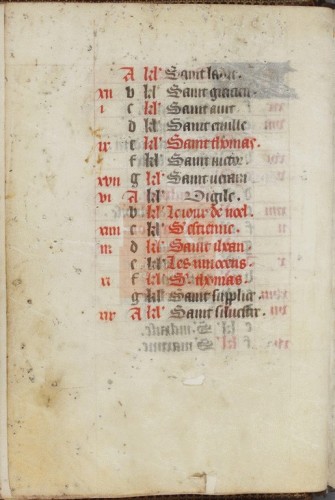 A kl' Saint
xii b kl' Saint gracien.
i c kl' Saint
d kl' Saint
ix e kl' Saint thomas.
f kl' Saint victor.
xvii g kl' Saint
vi A kl' Vigile.
b kl' Le iour de noel.
xiiii c kl' S' estienne.
iii d kl' Saint iehan.
e kl' Les innocens.
xi f kl' S' thomas.
g kl' Saint supplice.
xix A kl' Saint siluestre.